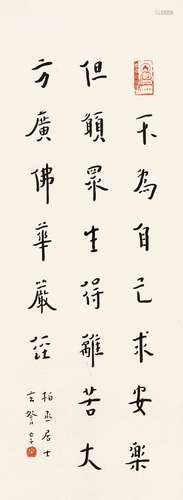 不為自己求安樂
但願眾生得離苦 大
方廣佛華嚴經
柏丞居士
玄謷書